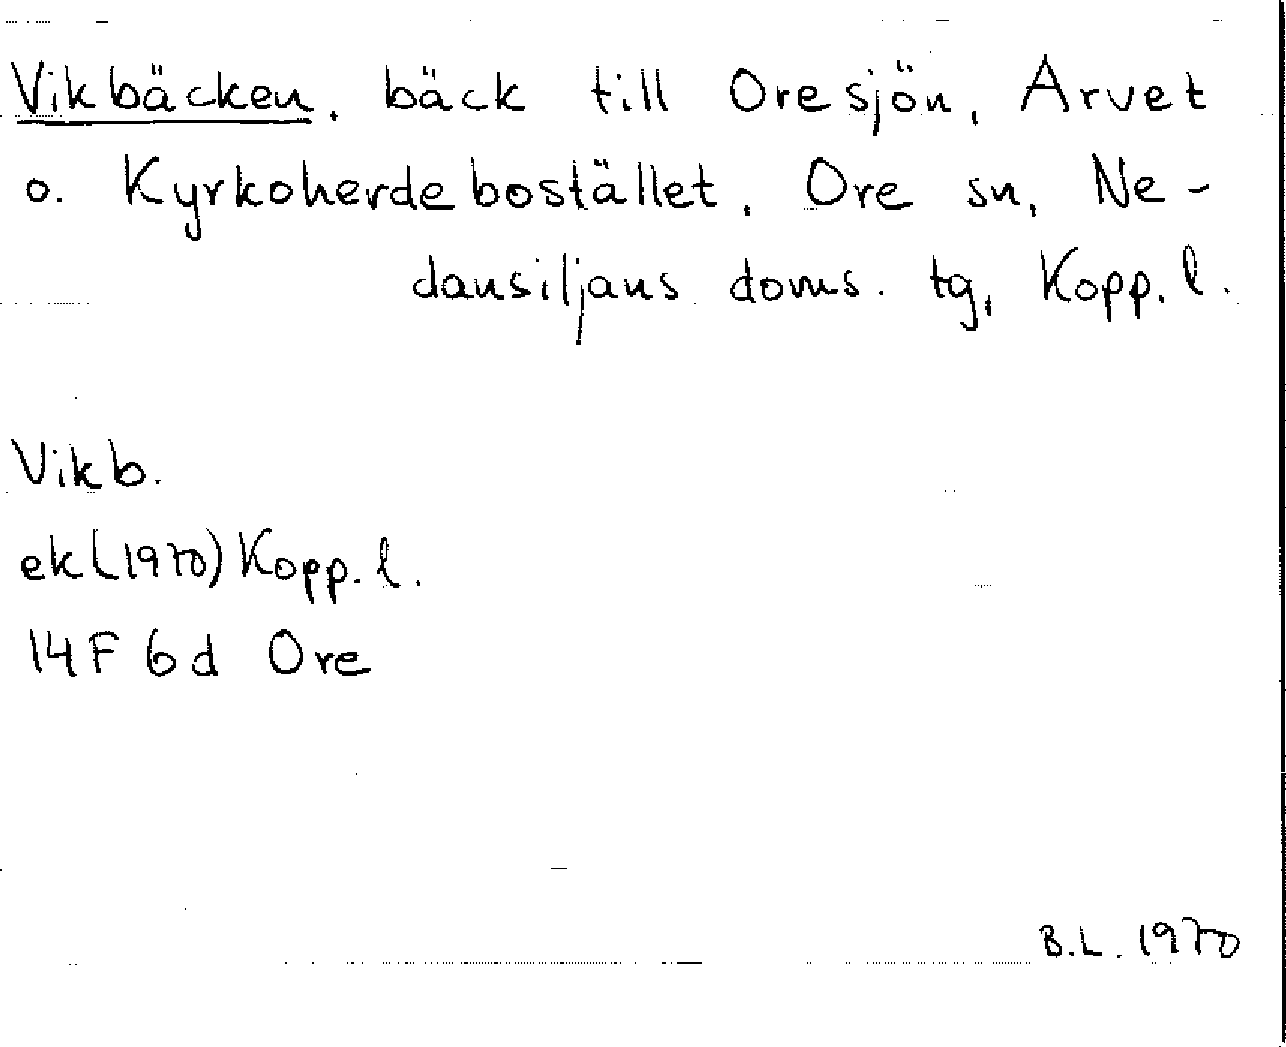 Vikbäcken, bäck till Oresjön, Arvet
o. Kyrkoherdebostället, Ore sn, Ne-
dansiljans doms. tg, Kopp. l.
Vikb.
ek (1970) Kopp. l.
14F 6d Ore
B.L. 1970